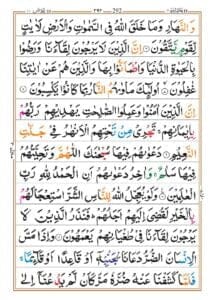 ۲۹۲
وَالنَّهَارِ وَمَا خَلَقَ اللّٰهُ فِى السَّمٰوٰتِ وَالْاَرْضِ لَاٰيٰتٍ
لِّقَوْمٍ يَّتَّقُوْنَ اِنَّ الَّذِيْنَ لَا يَرْجُوْنَ لِقَآءَنَا وَرَضُوْا
بِالْحَيٰوةِ الدُّنْيَا وَاطْمَاَنُّوْا بِهَا وَالَّذِيْنَ هُمْ عَنْ اٰيٰتِنَا
غٰفِلُوْنَ اُولٰٓئِكَ مَاْوٰىهُمُ النَّارُ بِمَا كَانُوْا يَكْسِبُوْنَ
اِنَّ الَّذِيْنَ اٰمَنُوْا وَعَمِلُوا الصّٰلِحٰتِ يَهْدِيْهِمْ رَبُّهُمْ
بِاِيْمَانِهِمْ تَجْرِىْ مِنْ تَحْتِهِمُ الْاَنْهٰرُ فِىْ جَنّٰتِ
النَّعِيْمِ دَعْوٰىهُمْ فِيْهَا سُبْحٰنَكَ اللّٰهُمَّ وَتَحِيَّتُهُمْ
فِيْهَا سَلٰمٌ وَاٰخِرُ دَعْوٰىهُمْ اَنِ الْحَمْدُ لِلّٰهِ رَبِّ
الْعٰلَمِيْنَ وَلَوْ يُعَجِّلُ اللّٰهُ لِلنَّاسِ الشَّرَّ اسْتِعْجَالَهُمْ
بِالْخَيْرِ لَقُضِىَ اِلَيْهِمْ اَجَلُهُمْ فَنَذَرُ الَّذِيْنَ لَا
يَرْجُوْنَ لِقَآءَنَا فِىْ طُغْيَانِهِمْ يَعْمَهُوْنَ وَاِذَا مَسَّ
الْاِنْسَانَ الضُّرُّ دَعَانَا لِجَنْۢبِهٖٓ اَوْ قَاعِدًا اَوْ قَآئِمًا
فَلَمَّا كَشَفْنَا عَنْهُ ضُرَّهٗ مَرَّ كَاَنْ لَّمْ يَدْعُنَآ اِلٰى